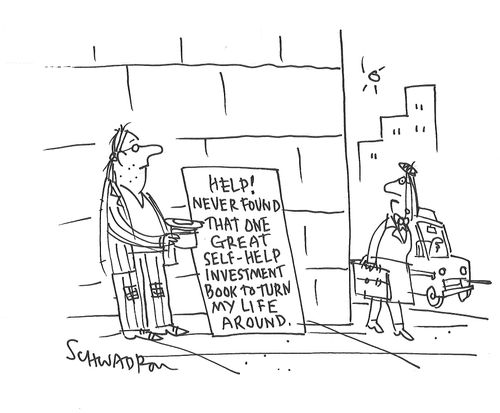 HELP!
NEVER FOUND
THAT ONE
GREAT
SELF-HELP
INVESTMENT
BOOK TO TURN
MY LIFE
AROUND.
SCHWADRON